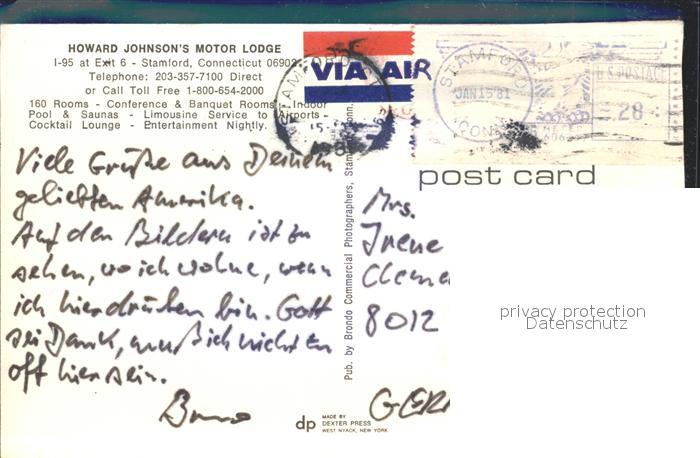 HOWARD JOHNSON'S MOTOR LODGE
I-95 at Exit 6 - Stamford, Connecticut 06902
Telephone: 203-357-7100 Direct
or Call Toll Free 1-800-654-2000
160 Rooms - Conference & Banquet Rooms - Indoor
Pool & Saunas - Limousine Service to Airports -
Cocktail Lounge - Entertainment Nightly.
VIA AIR
STAMFORD
JAN 15 '81
CONN
U.S. POSTAGE
28
post card
Viele Grüße aus Deinem
geliebten Amerika.
Auf den Bildern ist zu
sehen, wo ich wohne, wenn
ich hierdrüben bin. Gott
sei Dank, muß ich nicht zu
oft hier sein.
Bruno
Pub. by Brondo Commercial Photographers, Stamford, Conn.
Mrs.
Irene
Cleme
8012
GER
privacy protection
Datenschutz
dp
MADE BY
DEXTER PRESS
WEST NYACK, NEW YORK